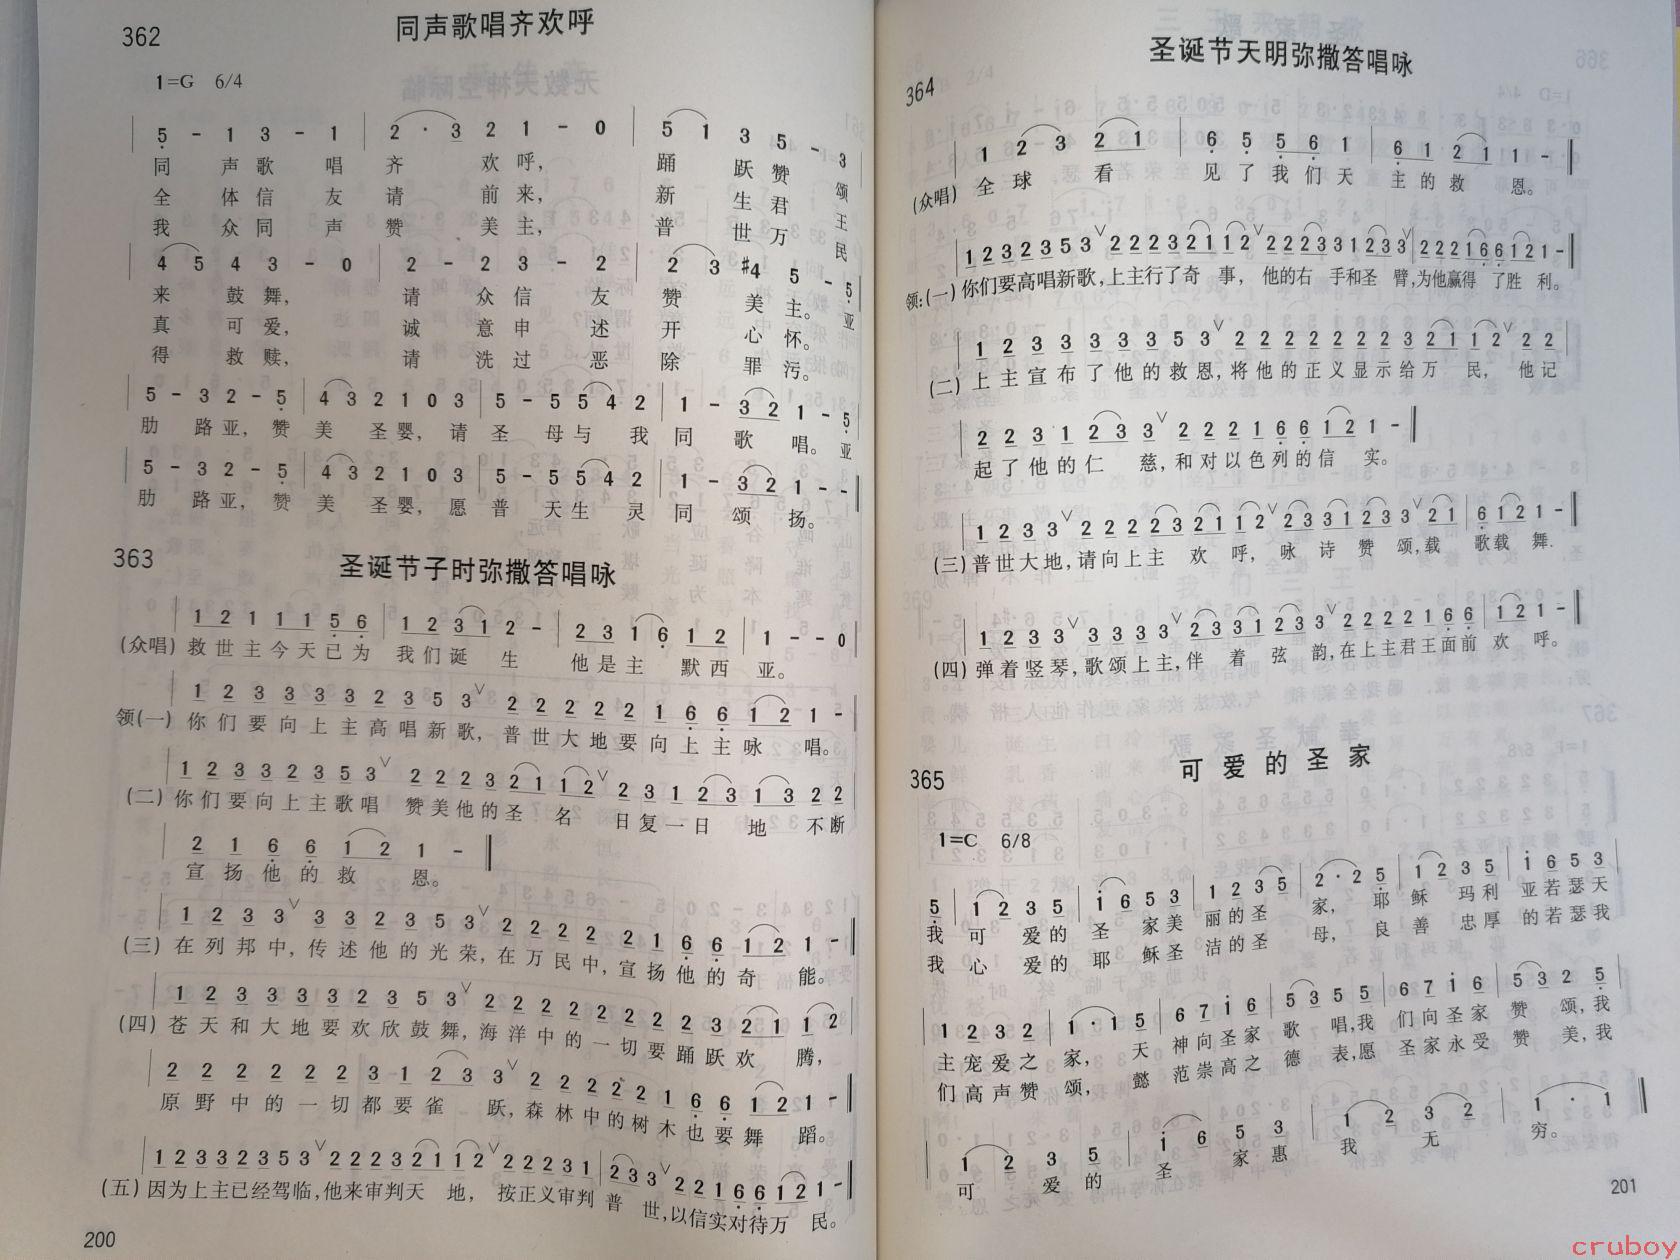 362
同声歌唱齐欢呼
1=G 6/4
5 - 1 3 - 1 | 2 · 3 2 1 - 0 | 5 1 3 5 - 3
同 声 歌 唱 齐 欢 呼, 踊 跃 赞 颂
全 体 信 友 请 前 来, 新 生 君 王
我 众 同 声 赞 美 主, 普 世 万 民
4 5 4 3 - 0 | 2 - 2 3 - 2 | 2 3 #4 5 - 5
来 鼓 舞, 请 众 信 友 赞 美 主。 亚
真 可 爱, 诚 意 申 述 开 心 怀。
得 救 赎, 请 洗 过 恶 除 罪 污。
5 - 3 2 - 5 | 4 3 2 1 0 3 | 5 - 5 5 4 2 | 1 - 3 2 1 - 5
肋 路 亚, 赞 美 圣 婴, 请 圣 母 与 我 同 歌 唱。 亚
5 - 3 2 - 5 | 4 3 2 1 0 3 | 5 - 5 5 4 2 | 1 - 3 2 1 - -
肋 路 亚, 赞 美 圣 婴, 愿 普 天 生 灵 同 颂 扬。
363
圣诞节子时弥撒答唱咏
1 2 1 1 1 5 6 | 1 2 3 1 2 - | 2 3 1 6 1 2 | 1 - - 0
(众唱) 救 世 主 今 天 已 为 我 们 诞 生 他 是 主 默 西 亚。
1 2 3 3 3 3 2 3 5 3 ∨ 2 2 2 2 2 1 6 6 1 2 1 -
领(一) 你 们 要 向 上 主 高 唱 新 歌, 普 世 大 地 要 向 上 主 咏 唱。
1 2 3 3 2 3 5 3 ∨ 2 2 2 3 2 1 1 2 ∨ 2 3 1 2 3 1 3 2 2
(二) 你 们 要 向 上 主 歌 唱 赞 美 他 的 圣 名 日 复 一 日 地 不 断
2 1 6 6 1 2 1 -
宣 扬 他 的 救 恩。
1 2 3 3 ∨ 3 3 2 3 5 3 ∨ 2 2 2 2 2 1 6 6 1 2 1 -
(三) 在 列 邦 中, 传 述 他 的 光 荣, 在 万 民 中, 宣 扬 他 的 奇 能。
1 2 3 3 3 3 2 3 5 3 ∨ 2 2 2 2 2 2 2 2 3 2 1 1 2
(四) 苍 天 和 大 地 要 欢 欣 鼓 舞, 海 洋 中 的 一 切 要 踊 跃 欢 腾,
2 2 2 2 2 2 3 1 2 3 3 ∨ 2 2 2 2 2 1 6 6 1 2 1 -
原 野 中 的 一 切 都 要 雀 跃, 森 林 中 的 树 木 也 要 舞 蹈。
1 2 3 3 2 3 5 3 ∨ 2 2 2 3 2 1 1 2 ∨ 2 2 2 3 1 | 2 3 3 ∨ 2 2 1 6 6 1 2 1 -
(五) 因为上主已经驾临, 他来审判天 地, 按正义审判 普 世, 以信实对待万 民。
200
364
圣诞节天明弥撒答唱咏
1 2 3 2 1 | 6 5 5 6 1 | 6 1 2 1 1 -
(众唱) 全 球 看 见 了 我 们 天 主 的 救 恩。
1 2 3 2 3 5 3 ∨ 2 2 2 3 2 1 1 2 ∨ 2 2 2 3 3 1 2 3 3 ∨ 2 2 2 1 6 6 1 2 1 -
领:(一) 你们要高唱新歌, 上主行了奇 事, 他的右 手和圣 臂, 为他赢得 了胜 利。
1 2 3 3 3 3 3 5 3 ∨ 2 2 2 2 2 2 2 3 2 1 1 2 ∨ 2 2
(二) 上 主 宣 布 了 他 的 救 恩, 将 他 的 正 义 显 示 给 万 民, 他 记
2 2 3 1 2 3 3 ∨ 2 2 2 1 6 6 1 2 1 -
起 了 他 的 仁 慈, 和 对 以 色 列 的 信 实。
1 2 3 3 ∨ 2 2 2 3 2 1 1 2 ∨ 2 3 3 1 2 3 3 ∨ 2 1 | 6 1 2 1 -
(三) 普 世 大 地, 请 向 上 主 欢 呼, 咏 诗 赞 颂, 载 歌 载 舞.
1 2 3 3 ∨ 3 3 3 3 ∨ 2 3 3 1 2 3 3 ∨ 2 2 2 2 1 6 6 | 1 2 1 -
(四) 弹 着 竖 琴, 歌 颂 上 主, 伴 着 弦 韵, 在 上 主 君 王 面 前 欢 呼。
365
可 爱 的 圣 家
1=C 6/8
5 | 1 2 3 5 | 1 6 5 3 | 1 2 3 5 | 2 · 2 5 | 1 2 3 5 | 1 6 5 3
我 可 爱 的 圣 家 美 丽 的 圣 家, 耶 稣 玛 利 亚 若 瑟 天
我 心 爱 的 耶 稣 圣 洁 的 圣 母, 良 善 忠 厚 的 若 瑟 我
1 2 3 2 | 1 · 1 5 | 6 7 1 6 | 5 3 5 5 | 6 7 1 6 | 5 3 2 5
主 宠 爱 之 家, 天 神 向 圣 家 歌 唱, 我 们 向 圣 家 赞 颂, 我
们 高 声 赞 颂, 懿 范 崇 高 之 德 表, 愿 圣 家 永 受 赞 美, 我
1 2 3 5 | 1 6 5 3 | 1 2 3 2 | 1 · 1
可 爱 的 圣 家 惠 我 无 穷。
201
cruboy